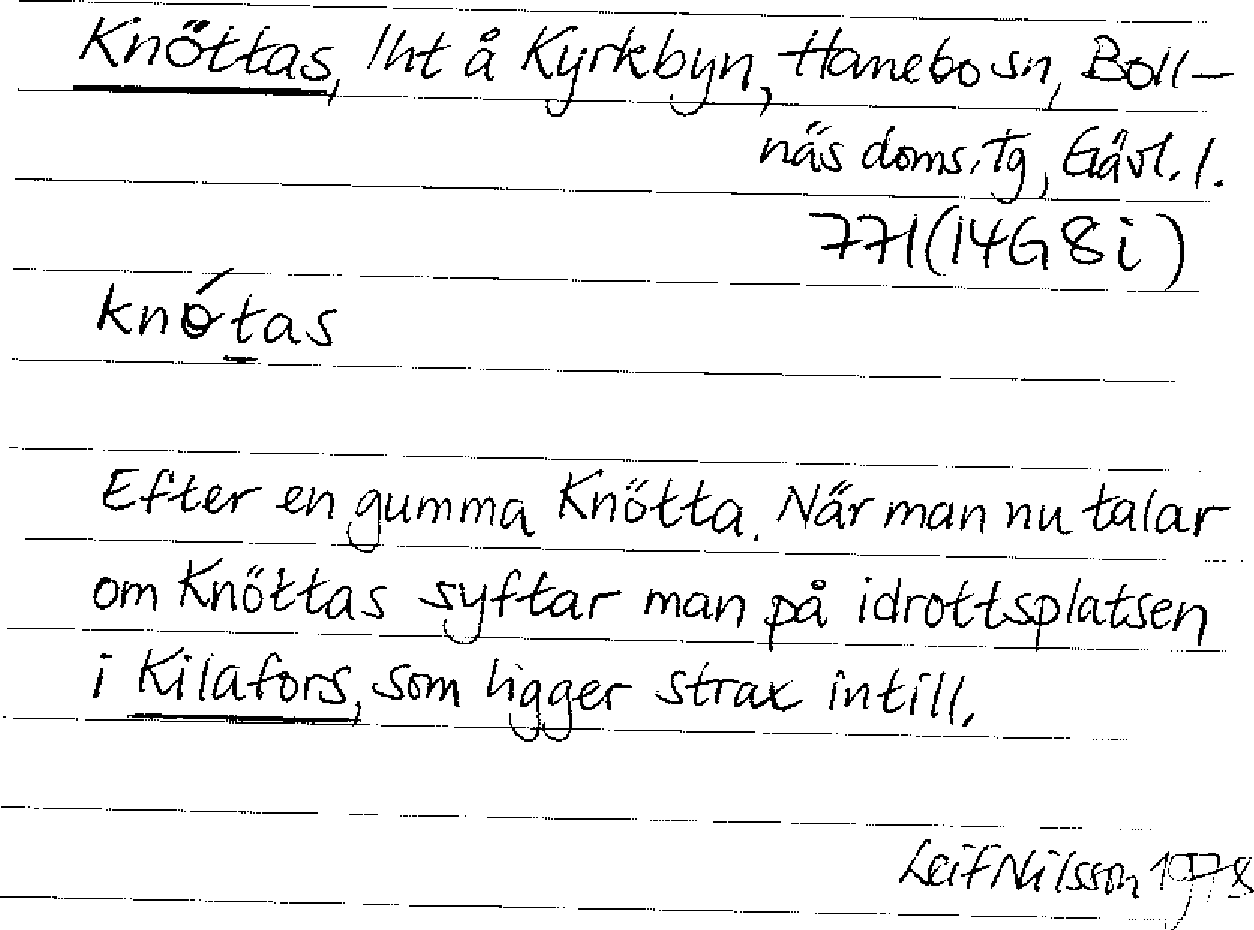 Knöttas, lht å Kyrkbyn, Hanebo sn, Boll-
näs doms.tg, Gävl. l.
771(14G 8i)
knǿtas
Efter en gumma Knötta. När man nu talar
om Knöttas syftar man på idrottsplatsen
i Kilafors, som ligger strax intill.
Leif Nilsson 1978